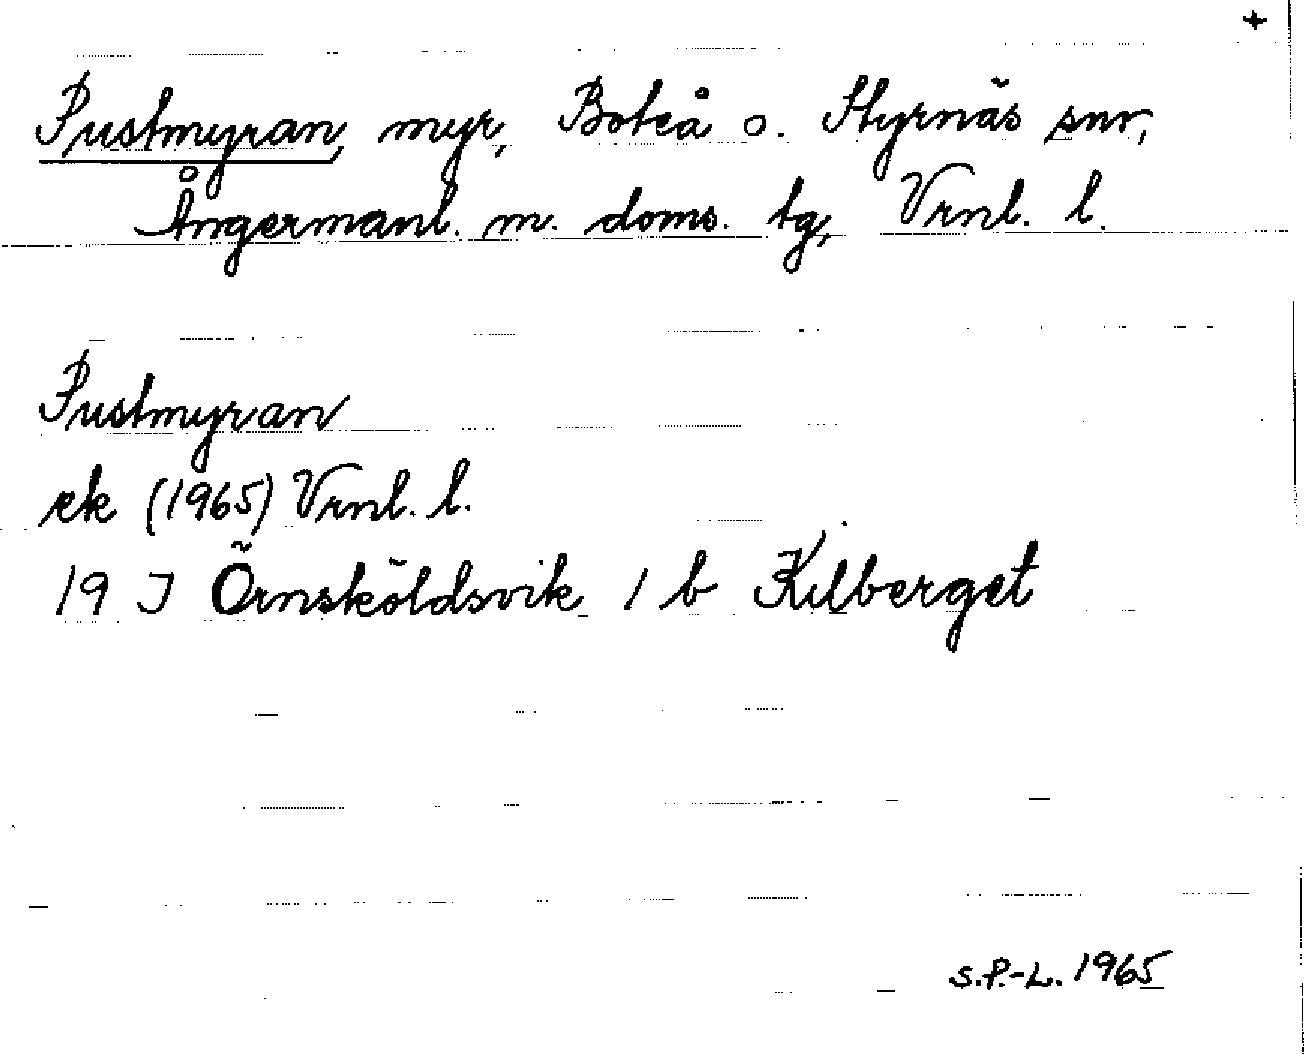 +
Pustmyran, myr, Boteå o. Styrnäs snr,
Ångermanl. m. doms. tg, Vrnl. l.
Pustmyran
ek (1965) Vrnl. l.
19 J Örnsköldsvik 1 b Kilberget
S.P.-L. 1965